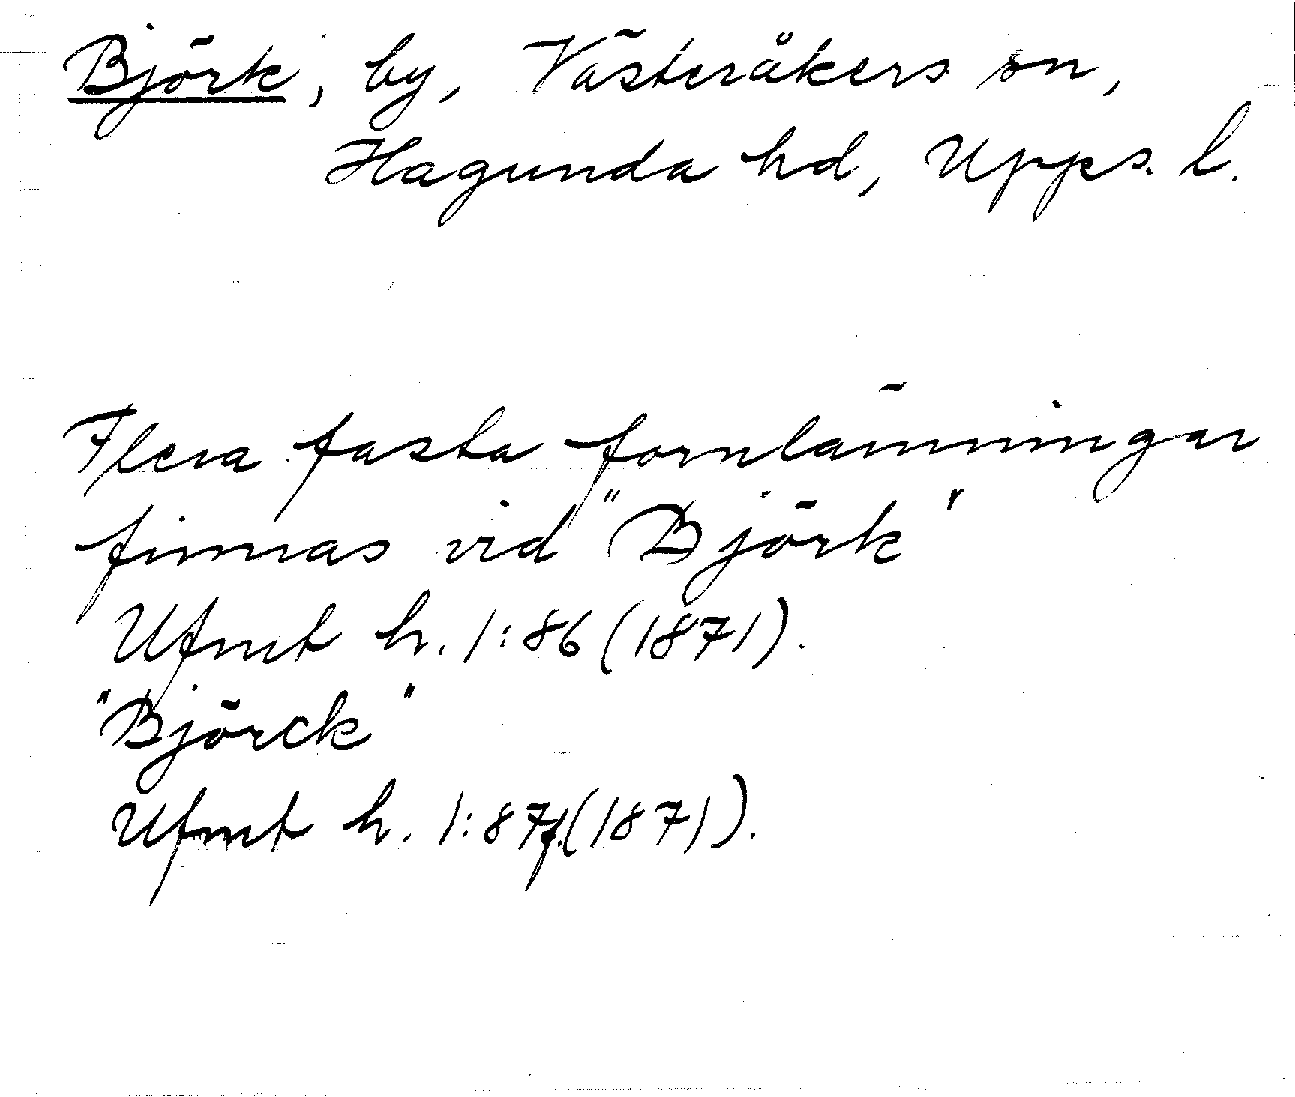 Björk, by, Västeråkers sn,
Hagunda hd, Upps. l.
Flera fasta fornlämningar
finnas vid "Björk"
Ufmt h. 1:86 (1871).
"Björck"
Ufmt h. 1:87f.(1871).